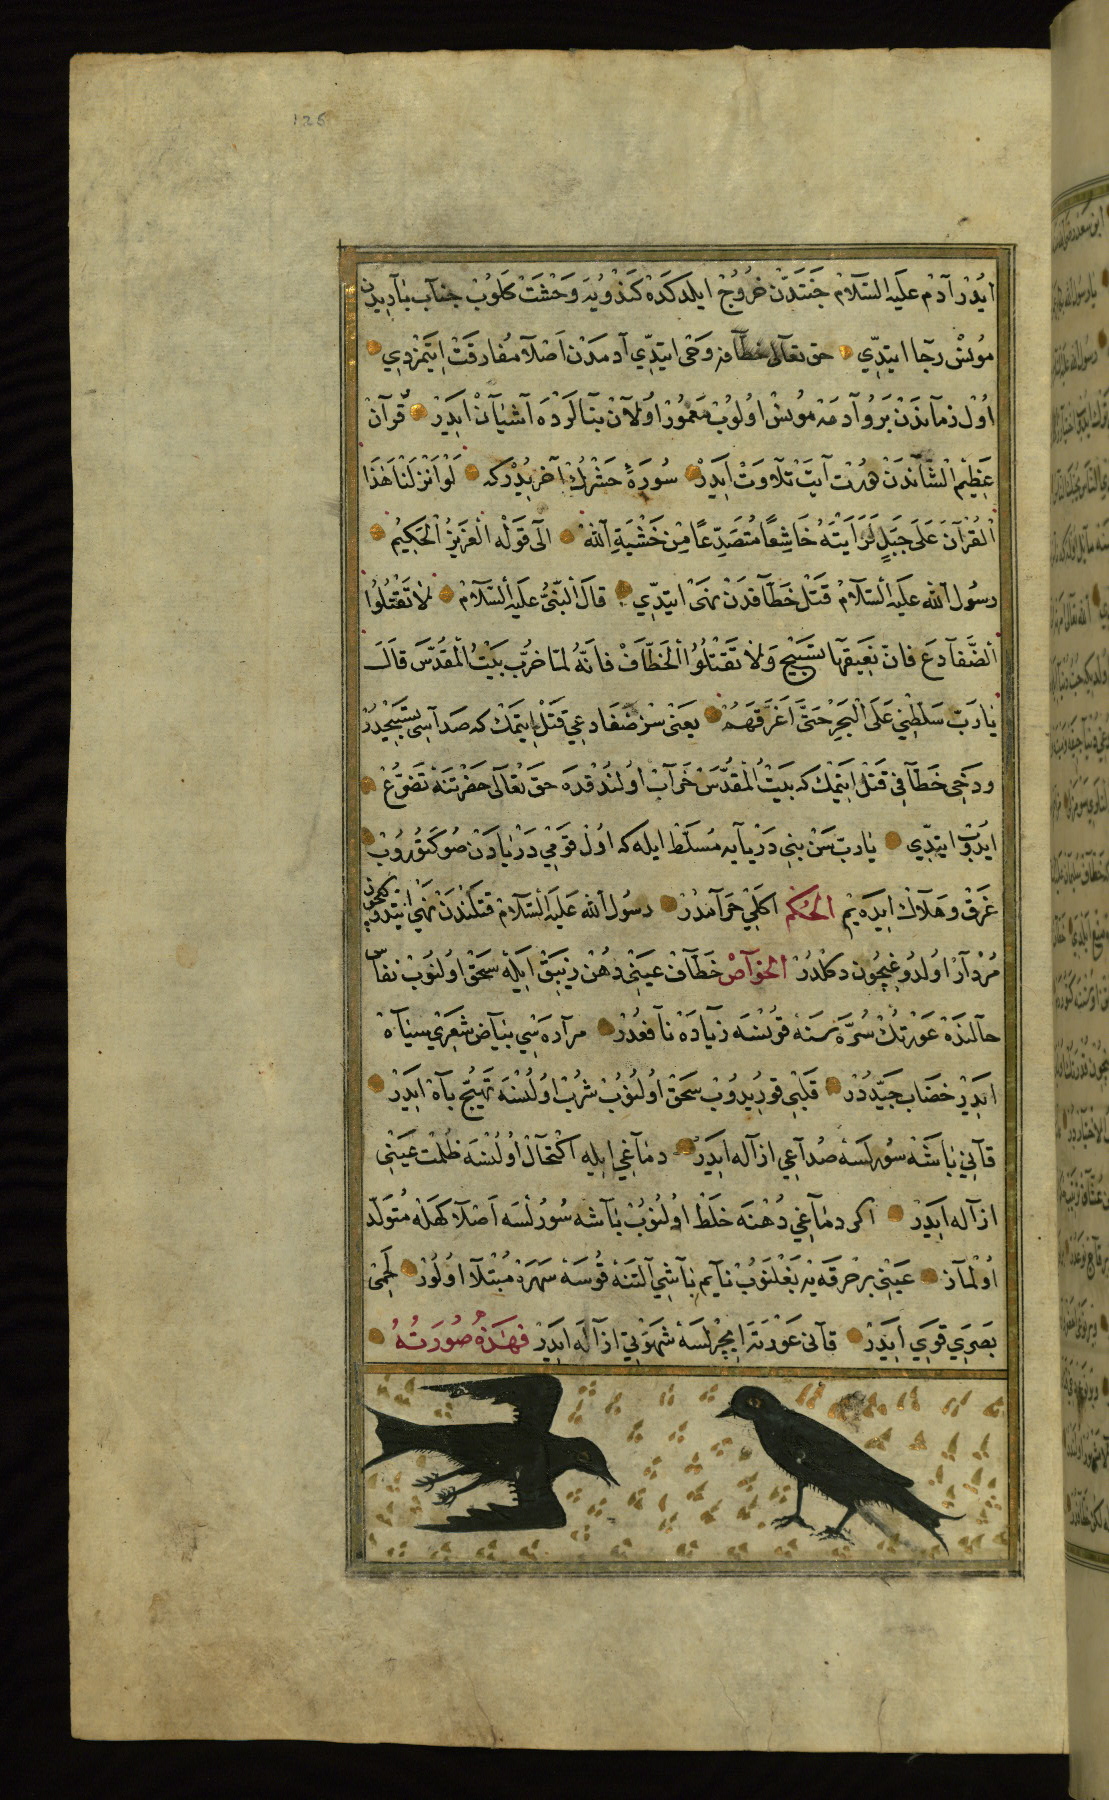 126
ايدر آدم عليه السّلام جنّتدن خروج ايلدكده كندويه وحشت كلوب جناب باريدن
مونس رجا ايتدّي حق تعالى خطّافه وحى ايتدّي آدمدن اصلا مفارقت ايتمزدي
اول زماندن برو آدمه مونس اولوب معمور اولان بنالرده آشيان ايدر قرآن
عظيم الشّاندن درت آيت تلاوت ايدر سورۀ حشرك آخريدركه لو انزلنا هٰذا
القرآن على جبلٍ لرايته خاشعًا متصدّعًا من خشية الله الى قوله العزيز الحكيم
رسول الله عليه السّلام قتل خطّافدن نهى ايتدّي قال النّبىّ عليه السّلام لا تقتلوا
الضّفادع فانّ نعيقها تسبيح ولا تقتلوا الخطّاف فانّه لمّا خرّب بيت المقدّس قال
يا ربّ سلّطنى على البحر حتّى اغرقهم يعنى سز ضفادعى قتل ايتمك كه صداسى تسبيحدر
ودخى خطّافى قتل ايتمك كه بيت المقدّس خراب اولندقده حق تعالى حضرتنه تضرّع
ايدوب ايتدّي يا ربّ سن بنى دريايه مسلّط ايله كه اول قومى دريادن صو كتوروب
غرق وهلاك ايده يم الحكم اكلى حرامدر رسول الله عليه السّلام قتلندن نهى ايتدوكيچون
مردار اولدوغيچون دكلدر الخواصّ خطّاف عينى دهن زنبق ايله سحق اولنوب نفاس
حالنده عورتك سرّه سنه قونسه زياده نافعدر مراره سى بياض شعرى سياه
ايدر خضاب جيّددر قلبى قوريدوب سحق اولنوب شرب اولنسه تهيّج باه ايدر
قانى باشه سورلسه صداعى ازاله ايدر دماغى ايله اكتحال اولنسه ظلمت عينى
ازاله ايدر اكر دماغى دهنه خلط اولنوب باشه سورلسه اصلا كهله متولّد
اولماز عينى بر خرقه يه بغلنوب نايم باشى آلتنه قونسه سهره مبتلا اولور لحمى
بصرى قوى ايدر قانى عورته ايچرلسه شهوتى ازاله ايدر فهٰذه صورته